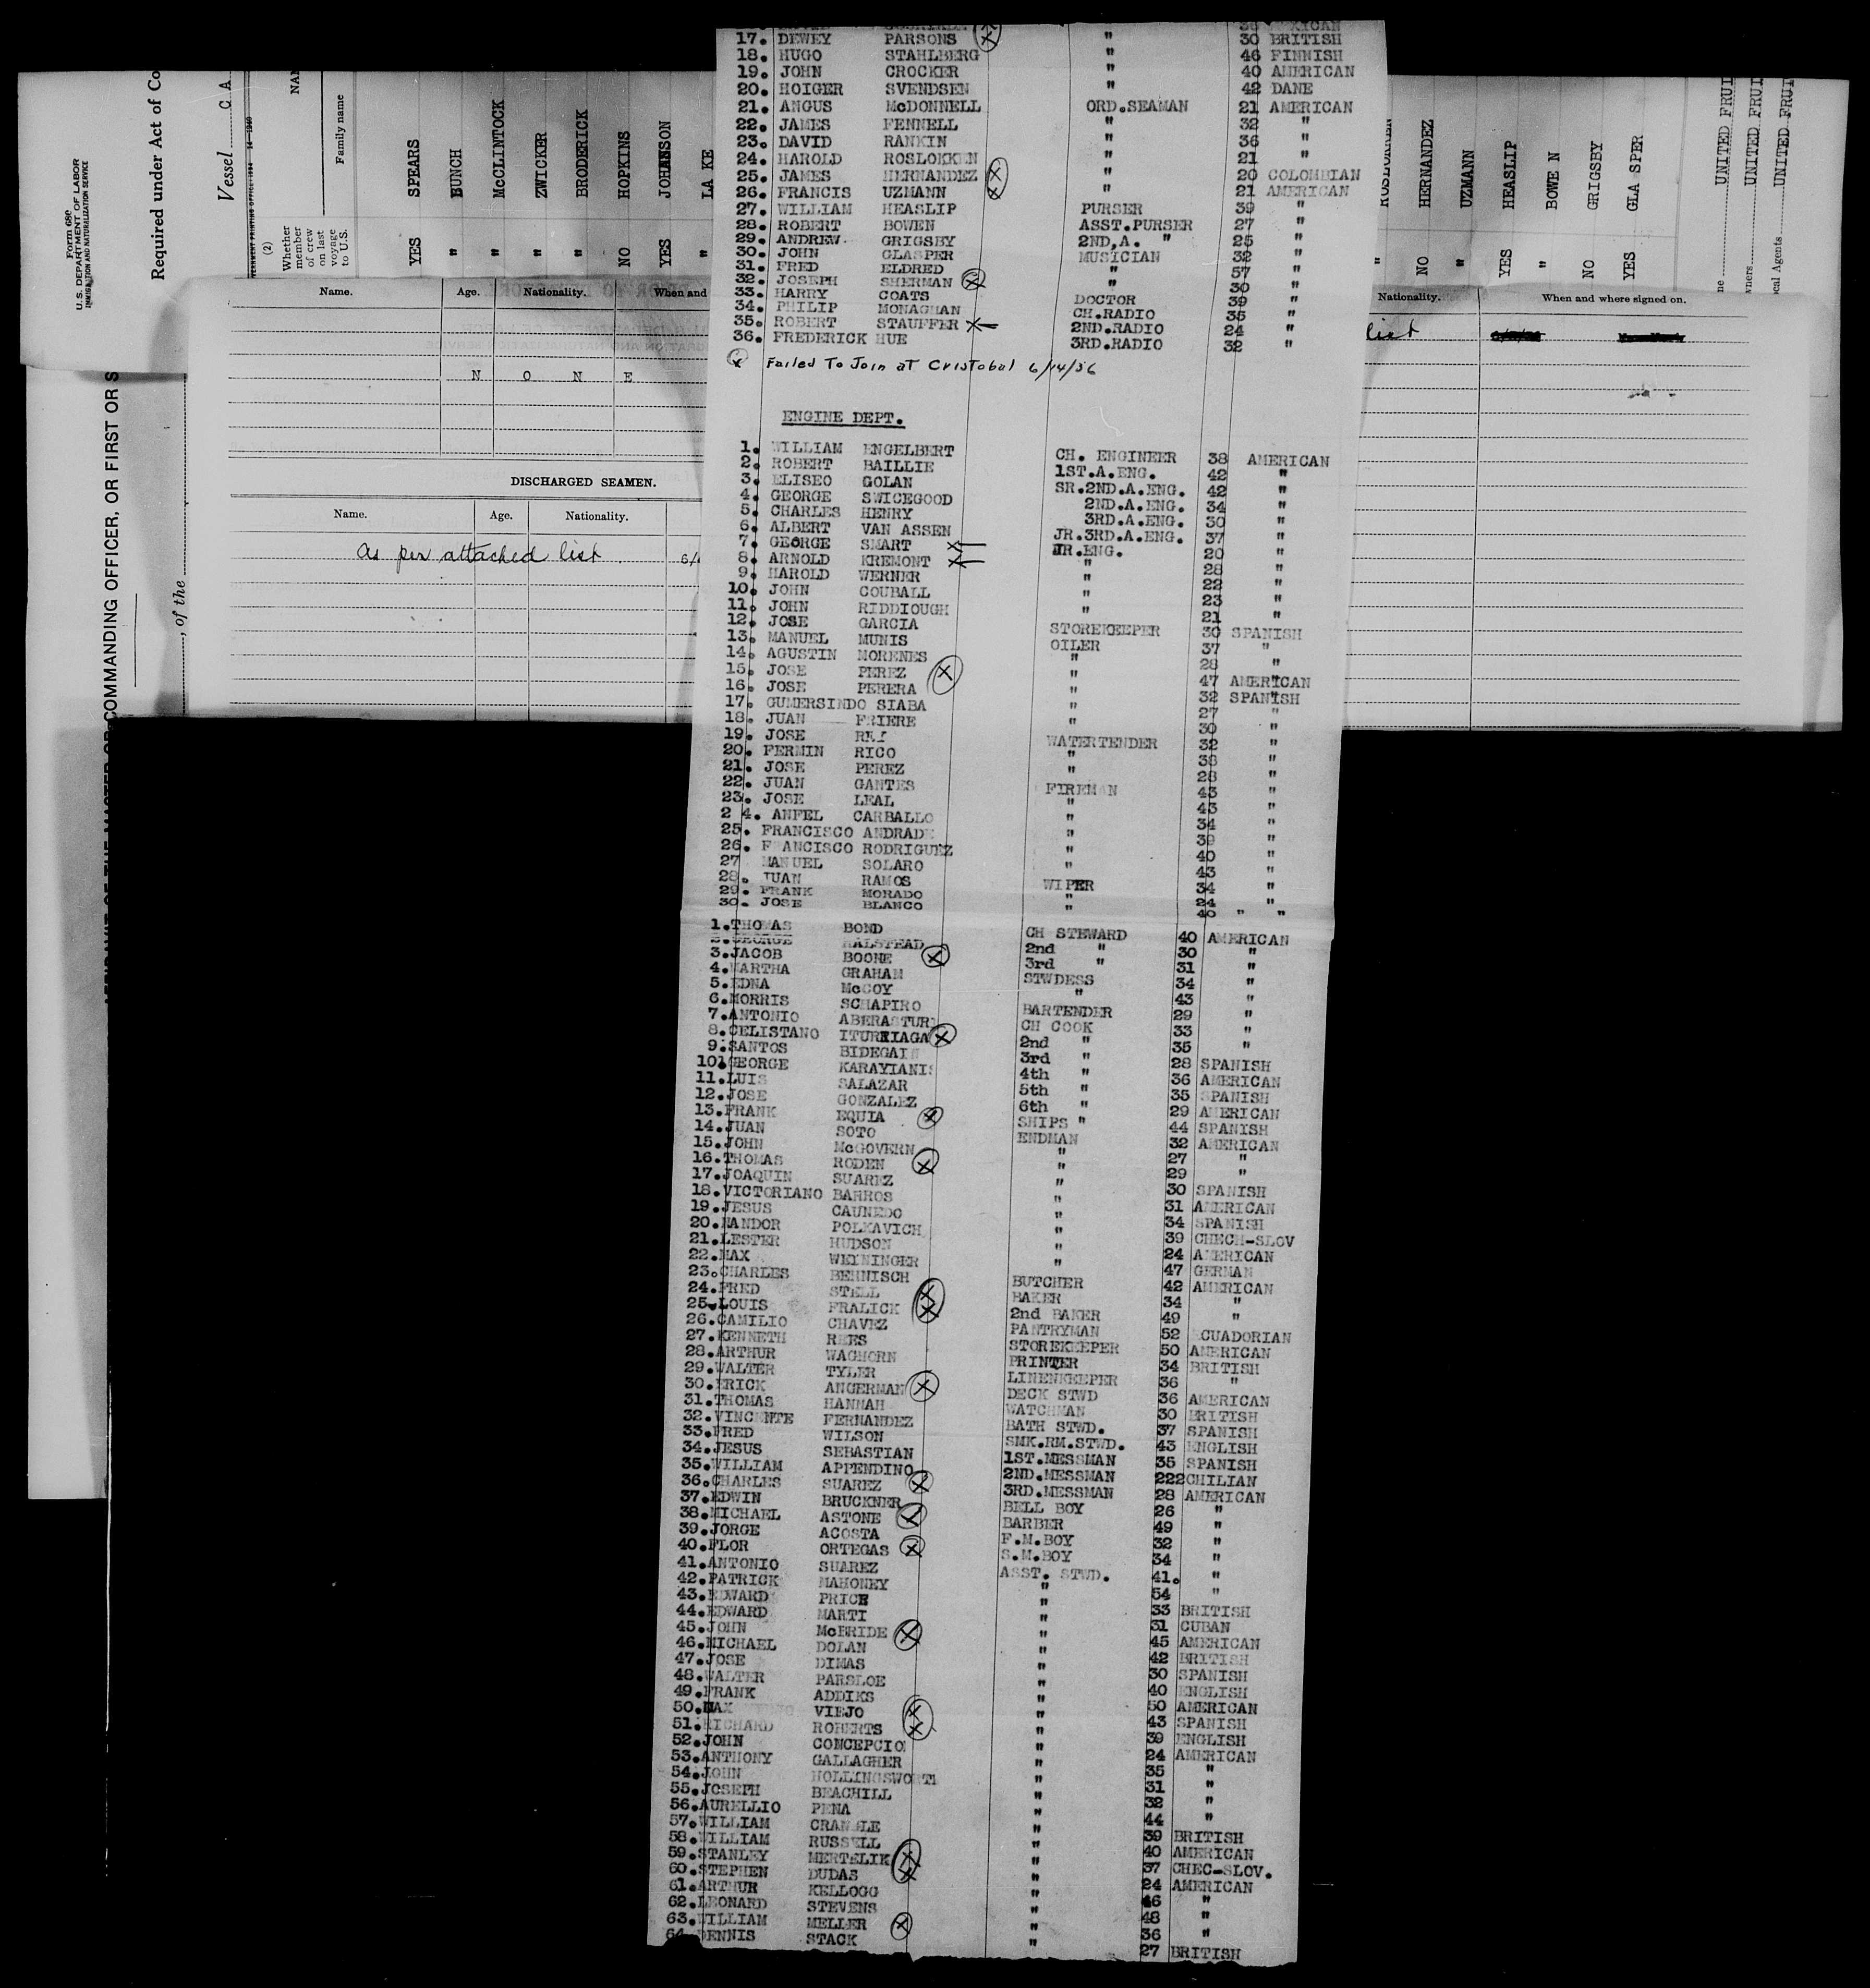 Form 680
U.S. DEPARTMENT OF LABOR
IMMIGRATION AND NATURALIZATION SERVICE
Required under Act of Co
Vessel C A
(2)
Whether member of crew on last voyage to U.S.
Family name
YES SPEARS
" BUNCH
" McCLINTOCK
" ZWICKER
" BRODERICK
NO HOPKINS
YES JOHANSON
" LA KE
COMMANDING OFFICER, OR FIRST OR S
, of the
Name. Age. Nationality. When and
N O N E
DISCHARGED SEAMEN.
Name. Age. Nationality.
as per attached list 6/
17. DEWEY PARSONS X " 30 BRITISH
18. HUGO STAHLBERG " 46 FINNISH
19. JOHN CROCKER " 40 AMERICAN
20. HOIGER SVENDSEN " 42 DANE
21. ANGUS McDONNELL ORD.SEAMAN 21 AMERICAN
22. JAMES FENNELL " 32 "
23. DAVID RANKIN " 36 "
24. HAROLD ROSLOKKEN " 21 "
25. JAMES HERNANDEZ X " 20 COLOMBIAN
26. FRANCIS UZMANN X " 21 AMERICAN
27. WILLIAM HEASLIP PURSER 39 "
28. ROBERT BOWEN ASST.PURSER 27 "
29. ANDREW GRIGSBY 2ND,A. " 25 "
30. JOHN GLASPER MUSICIAN 32 "
31. FRED ELDRED " 57 "
32. JOSEPH SHERMAN X " 30 "
33. HARRY COATS DOCTOR 39 "
34. PHILIP MONAGHAN CH.RADIO 35 "
35. ROBERT STAUFFER X 2ND.RADIO 24 "
36. FREDERICK HUE 3RD.RADIO 32 "
X Failed To Join at Cristobal 6/14/36
ENGINE DEPT.
1. WILLIAM ENGELBERT CH. ENGINEER 38 AMERICAN
2. ROBERT BAILLIE 1ST.A.ENG. 42 "
3. ELISEO GOLAN SR.2ND.A.ENG. 42 "
4. GEORGE SWICEGOOD 2ND.A.ENG. 34 "
5. CHARLES HENRY 3RD.A.ENG. 30 "
6. ALBERT VAN ASSEN JR.3RD.A.ENG. 37 "
7. GEORGE SMART X JR.ENG. 20 "
8. ARNOLD KREMONT X " 28 "
9. HAROLD WERNER " 22 "
10. JOHN COUBALL " 23 "
11. JOHN RIDDIOUGH " 21 "
12. JOSE GARCIA STOREKEEPER 30 SPANISH
13. MANUEL MUNIS OILER 37 "
14. AGUSTIN MORENES " 28 "
15. JOSE PEREZ X " 47 AMERICAN
16. JOSE PERERA " 32 SPANISH
17. GUMERSINDO SIABA " 27 "
18. JUAN FRIERE " 30 "
19. JOSE REI WATERTENDER 32 "
20. FERMIN RICO " 38 "
21. JOSE PEREZ " 28 "
22. JUAN GANTES FIREMAN 43 "
23. JOSE LEAL " 43 "
2 4. ANFEL CARBALLO " 34 "
25. FRANCISCO ANDRADE " 39 "
26. F ANCISCO RODRIGUEZ " 40 "
27 MANUEL SOLARO " 43 "
28. JUAN RAMOS WIPER 34 "
29. FRANK MORADO " 24 "
30. JOSE BLANCO " 40 " "
1. THOMAS BOND CH STEWARD 40 AMERICAN
2. GEORGE HALSTEAD 2nd " 30 "
3. JACOB BOONE X 3rd " 31 "
4. MARTHA GRAHAM STWDESS 34 "
5. EDNA McCOY " 43 "
6. MORRIS SCHAPIRO BARTENDER 29 "
7. ANTONIO ABERASTURI CH COOK 33 "
8. CELISTANO ITURRIAGA X 2nd " 35 "
9. SANTOS BIDEGAIN 3rd " 28 SPANISH
10. GEORGE KARAYIANIS 4th " 36 AMERICAN
11. LUIS SALAZAR 5th " 35 SPANISH
12. JOSE GONZALEZ 6th " 29 AMERICAN
13. FRANK EQUIA X SHIPS " 44 SPANISH
14. JUAN SOTO ENDMAN 32 AMERICAN
15. JOHN McGOVERN " 27 "
16. THOMAS RODEN X " 29 "
17. JOAQUIN SUAREZ " 30 SPANISH
18. VICTORIANO BARROS " 31 AMERICAN
19. JESUS CAUNEDO " 34 SPANISH
20. NANDOR POLKAVICH " 39 CHECH-SLOV
21. LESTER HUDSON " 24 AMERICAN
22. MAX WEININGER " 47 GERMAN
23. CHARLES BEHNISCH BUTCHER 42 AMERICAN
24. FRED STELL X BAKER 34 "
25. LOUIS FRALICK X 2nd BAKER 49 "
26. CAMILIO CHAVEZ PANTRYMAN 52 CUADORIAN
27. KENNETH REES STOREKEEPER 50 AMERICAN
28. ARTHUR WAGHORN PRINTER 34 BRITISH
29. WALTER TYLER LINENKEEPER 36 "
30. ERICK ANGERMAN X DECK STWD 36 AMERICAN
31. THOMAS HANNAH WATCHMAN 30 BRITISH
32. VINCENTE FERNANDEZ BATH STWD. 37 SPANISH
33. FRED WILSON SMK.RM.STWD. 43 ENGLISH
34. JESUS SEBASTIAN 1ST.MESSMAN 35 SPANISH
35. WILLIAM APPENDINO 2ND.MESSMAN 222CHILIAN
36. CHARLES SUAREZ X 3RD.MESSMAN 28 AMERICAN
37. EDWIN BRUCKNER BELL BOY 26 "
38. MICHAEL ASTONE BARBER 49 "
39. JORGE ACOSTA F.M.BOY 32 "
40. FLOR ORTEGAS X S.M.BOY 34 "
41. ANTONIO SUAREZ ASST. STWD. 41. "
42. PATRICK MAHONEY " 54 "
43. EDWARD PRICE " 33 BRITISH
44. EDWARD MARTI " 31 CUBAN
45. JOHN McBRIDE X " 45 AMERICAN
46. MICHAEL DOLAN " 42 BRITISH
47. JOSE DIMAS " 30 SPANISH
48. WALTER PARSLOE " 40 ENGLISH
49. FRANK ADDIKS " 50 AMERICAN
50. MAX VIEJO X " 43 SPANISH
51. RICHARD ROBERTS X " 39 ENGLISH
52. JOHN CONCEPCIO " 24 AMERICAN
53. ANTHONY GALLAGHER " 35 "
54. JOHN HOLLINGSWORTH " 31 "
55. JOSEPH BEAGHILL " 32 "
56. AURELLIO PENA " 44 "
57. WILLIAM " 39 BRITISH
58. WILLIAM RUSSELL " 40 AMERICAN
59. STANLEY MERTELIK X " 37 CHEC-SLOV.
60. STEPHEN DUDAS X " 24 AMERICAN
61. ARTHUR KELLOGG " 46 "
62. LEONARD STEVENS " 48 "
63. WILLIAM MELLER X " 36 "
64. DENNIS STACK " 27 BRITISH
NO HERNANDEZ
" UZMANN
YES HEASLIP
" BOWE N
NO GRIGSBY
YES GLA SPER
UNITED FRUI
UNITED FRUI
cal Agents UNITED FRUI
Nationality. When and where signed on.
list